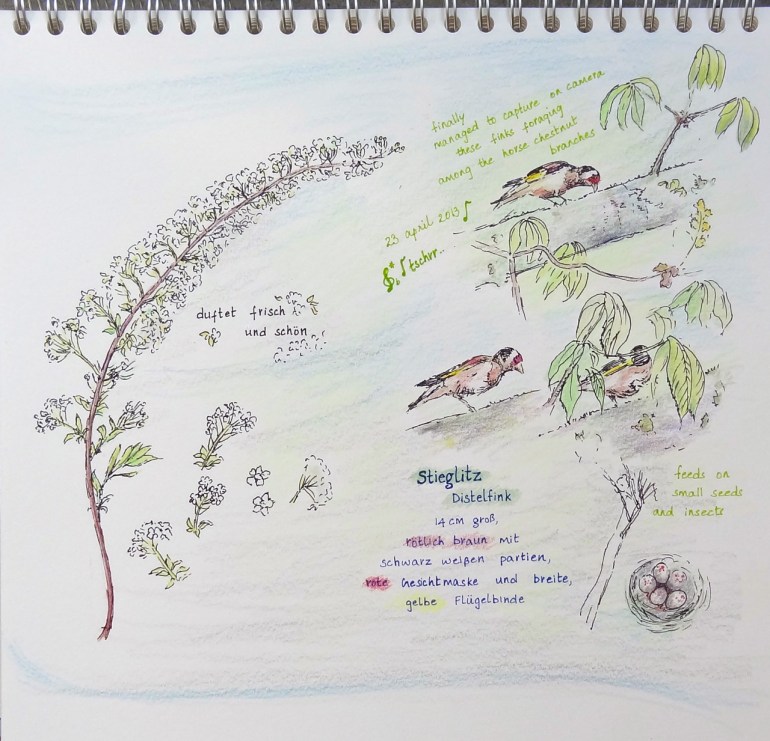 finally
managed to capture on camera
these finks foraging
among the horse chestnut
branches
23 april 2013
tschrr...
duftet frisch
und schön
Stieglitz
Distelfink
14 cm groß,
rötlich braun mit
schwarz weißen partien,
rote Gesichtmaske und breite,
gelbe Flügelbinde
feeds on
small seeds
and insects